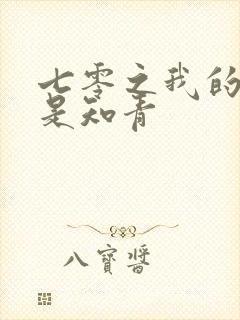 七零之我的
是知青
八寶醬